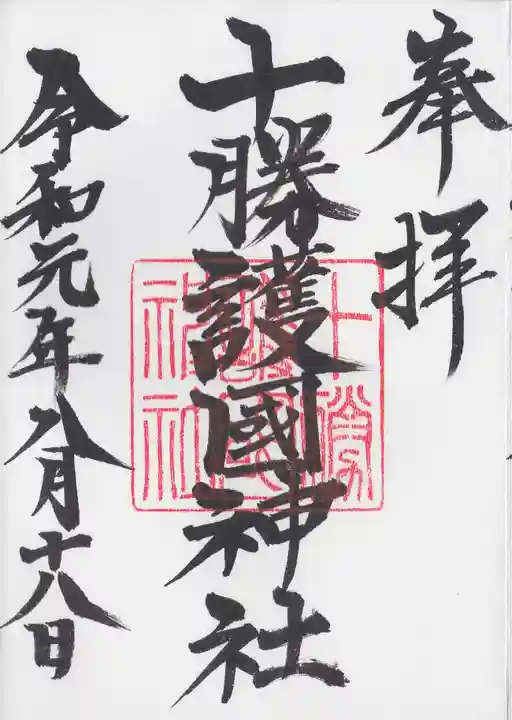 奉拝
十勝護國神社
令和元年八月十八日
十勝
護國
神社